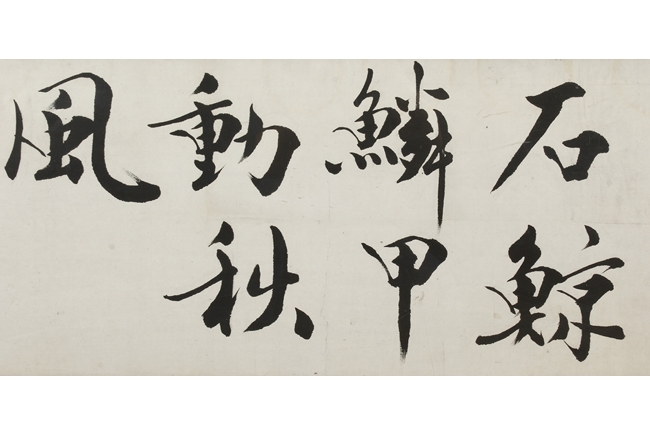 石鯨
鱗甲
動秋
風